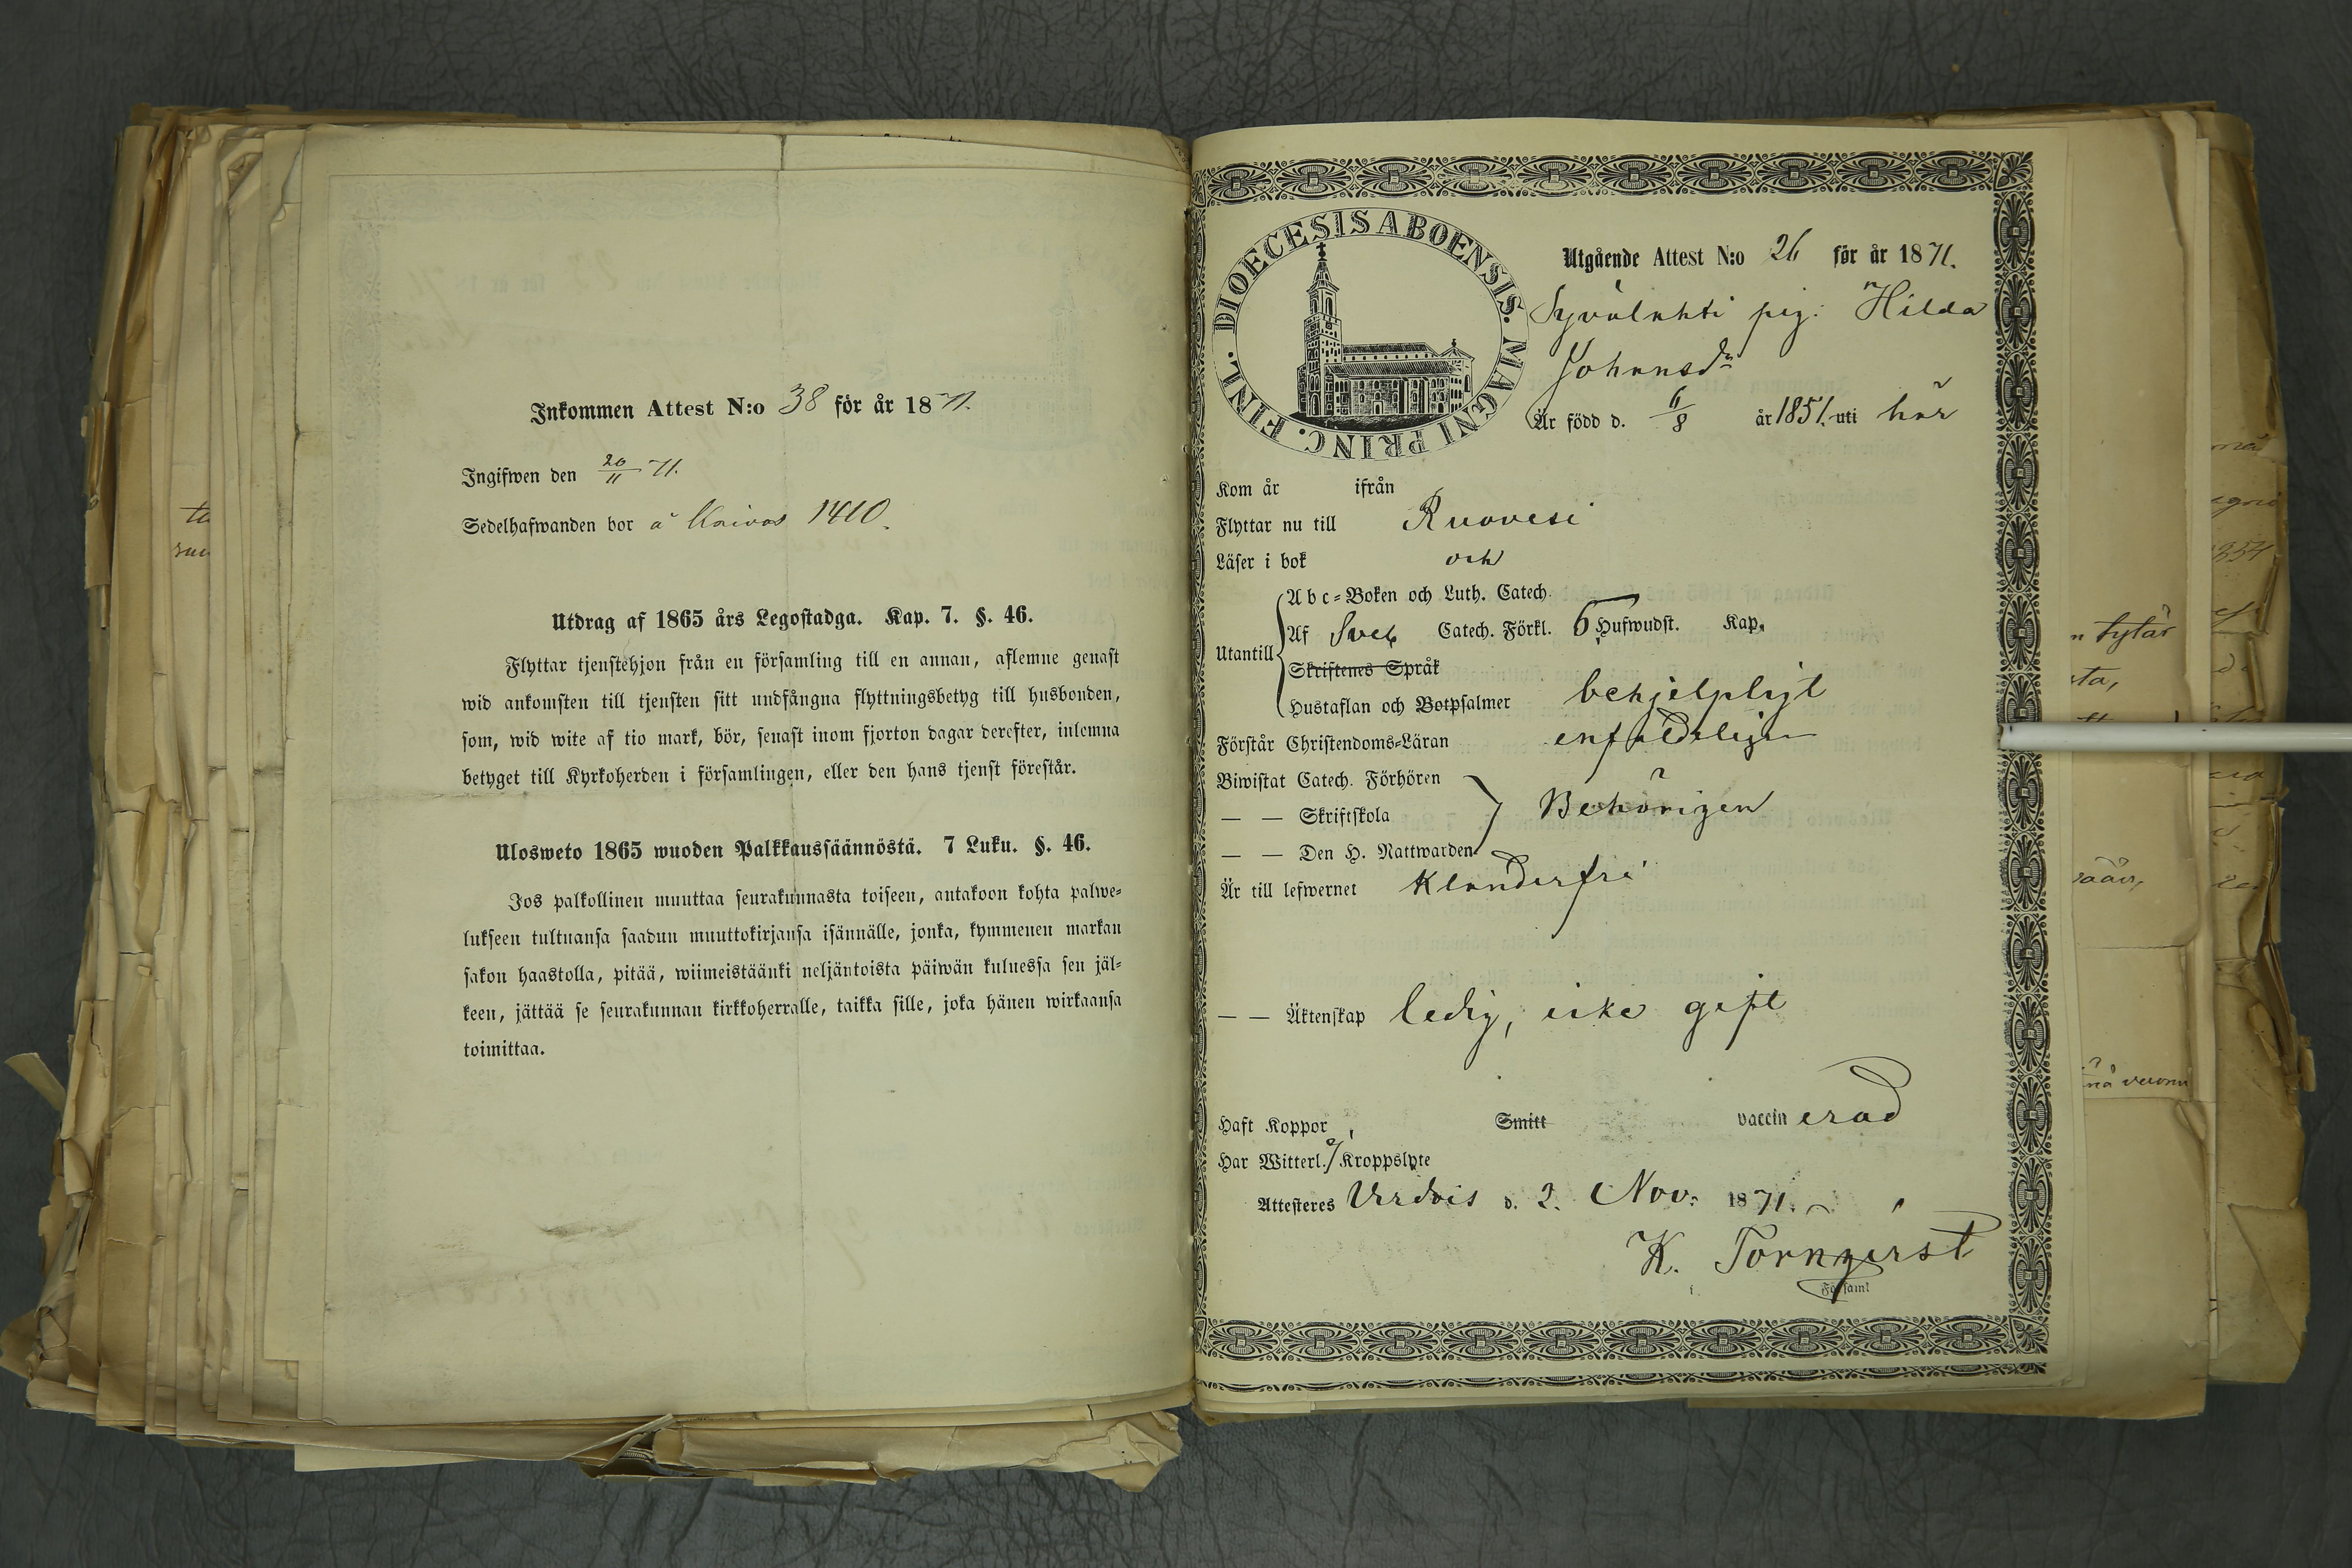 Inkommen Attest N:o 38 för år 1871.
Ingifwen den 20/11 71.
Sedelhafwanden bor å Kaivos 1410.
Utdrag af 1865 års Legostadga. Kap. 7. §. 46.
Flyttar tjenstehjon från en församling till en annan, aflemne genast
wid ankomsten till tjensten sitt undfångna flyttningsbetyg till husbonden,
som, wid wite af tio mark, bör, senast inom fjorton dagar derefter, inlemna
betyget till Kyrkoherden i församlingen, eller den hans tjenst förestår.
Ulosweto 1865 wuoden Palkkaussäännöstä. 7 Luku. §. 46.
Jos palkollinen muuttaa seurakunnasta toiseen, antakoon kohta palwe-
lukseen tultuansa saadun muuttokirjansa isännälle, jonka, kymmenen markan
sakon haastolla, pitää, wiimeistäänki neljäntoista päiwän kuluessa sen jäl-
keen, jättää se seurakunnan kirkkoherralle, taikka sille, joka hänen wirkaansa
toimittaa.
DIOECESIS ABOENSIS. MAGNI PRINC. FINL.
Utgående Attest N:o 26 för år 1871.
Syvälahti pig: Hilda
Johansdr
Är född d. 6/8 år 1851. uti här
Kom år ifrån
Flyttar nu till Ruovesi
Läser i bok och
Utantill
Abc-Boken och Luth. Catech.
Af Sveb Catech. Förkl. 6 Hufwudst. Kap.
Skriftenes Språk
Hustaflan och Botpsalmer behjelpligt
Förstår Christendoms-Läran enfaldeligen
Biwistat Catech. Förhören
— — Skriftskola Behörigen
— — Den H. Nattwarden
Är till lefwernet Klanderfri
— — Äktenskap ledig, icke gift
Haft Koppor, Smitt vaccinerad
Har Witterl. ej Kroppslyte
Attesteres Urdois d. 2. Nov. 1871.
K. Tornqvist
Församl